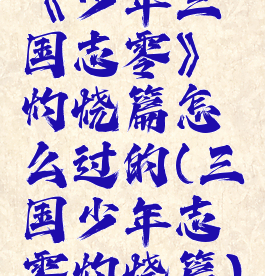 《少年三
国志零》
灼烧篇怎
么过的(三
国少年志
零灼烧篇)